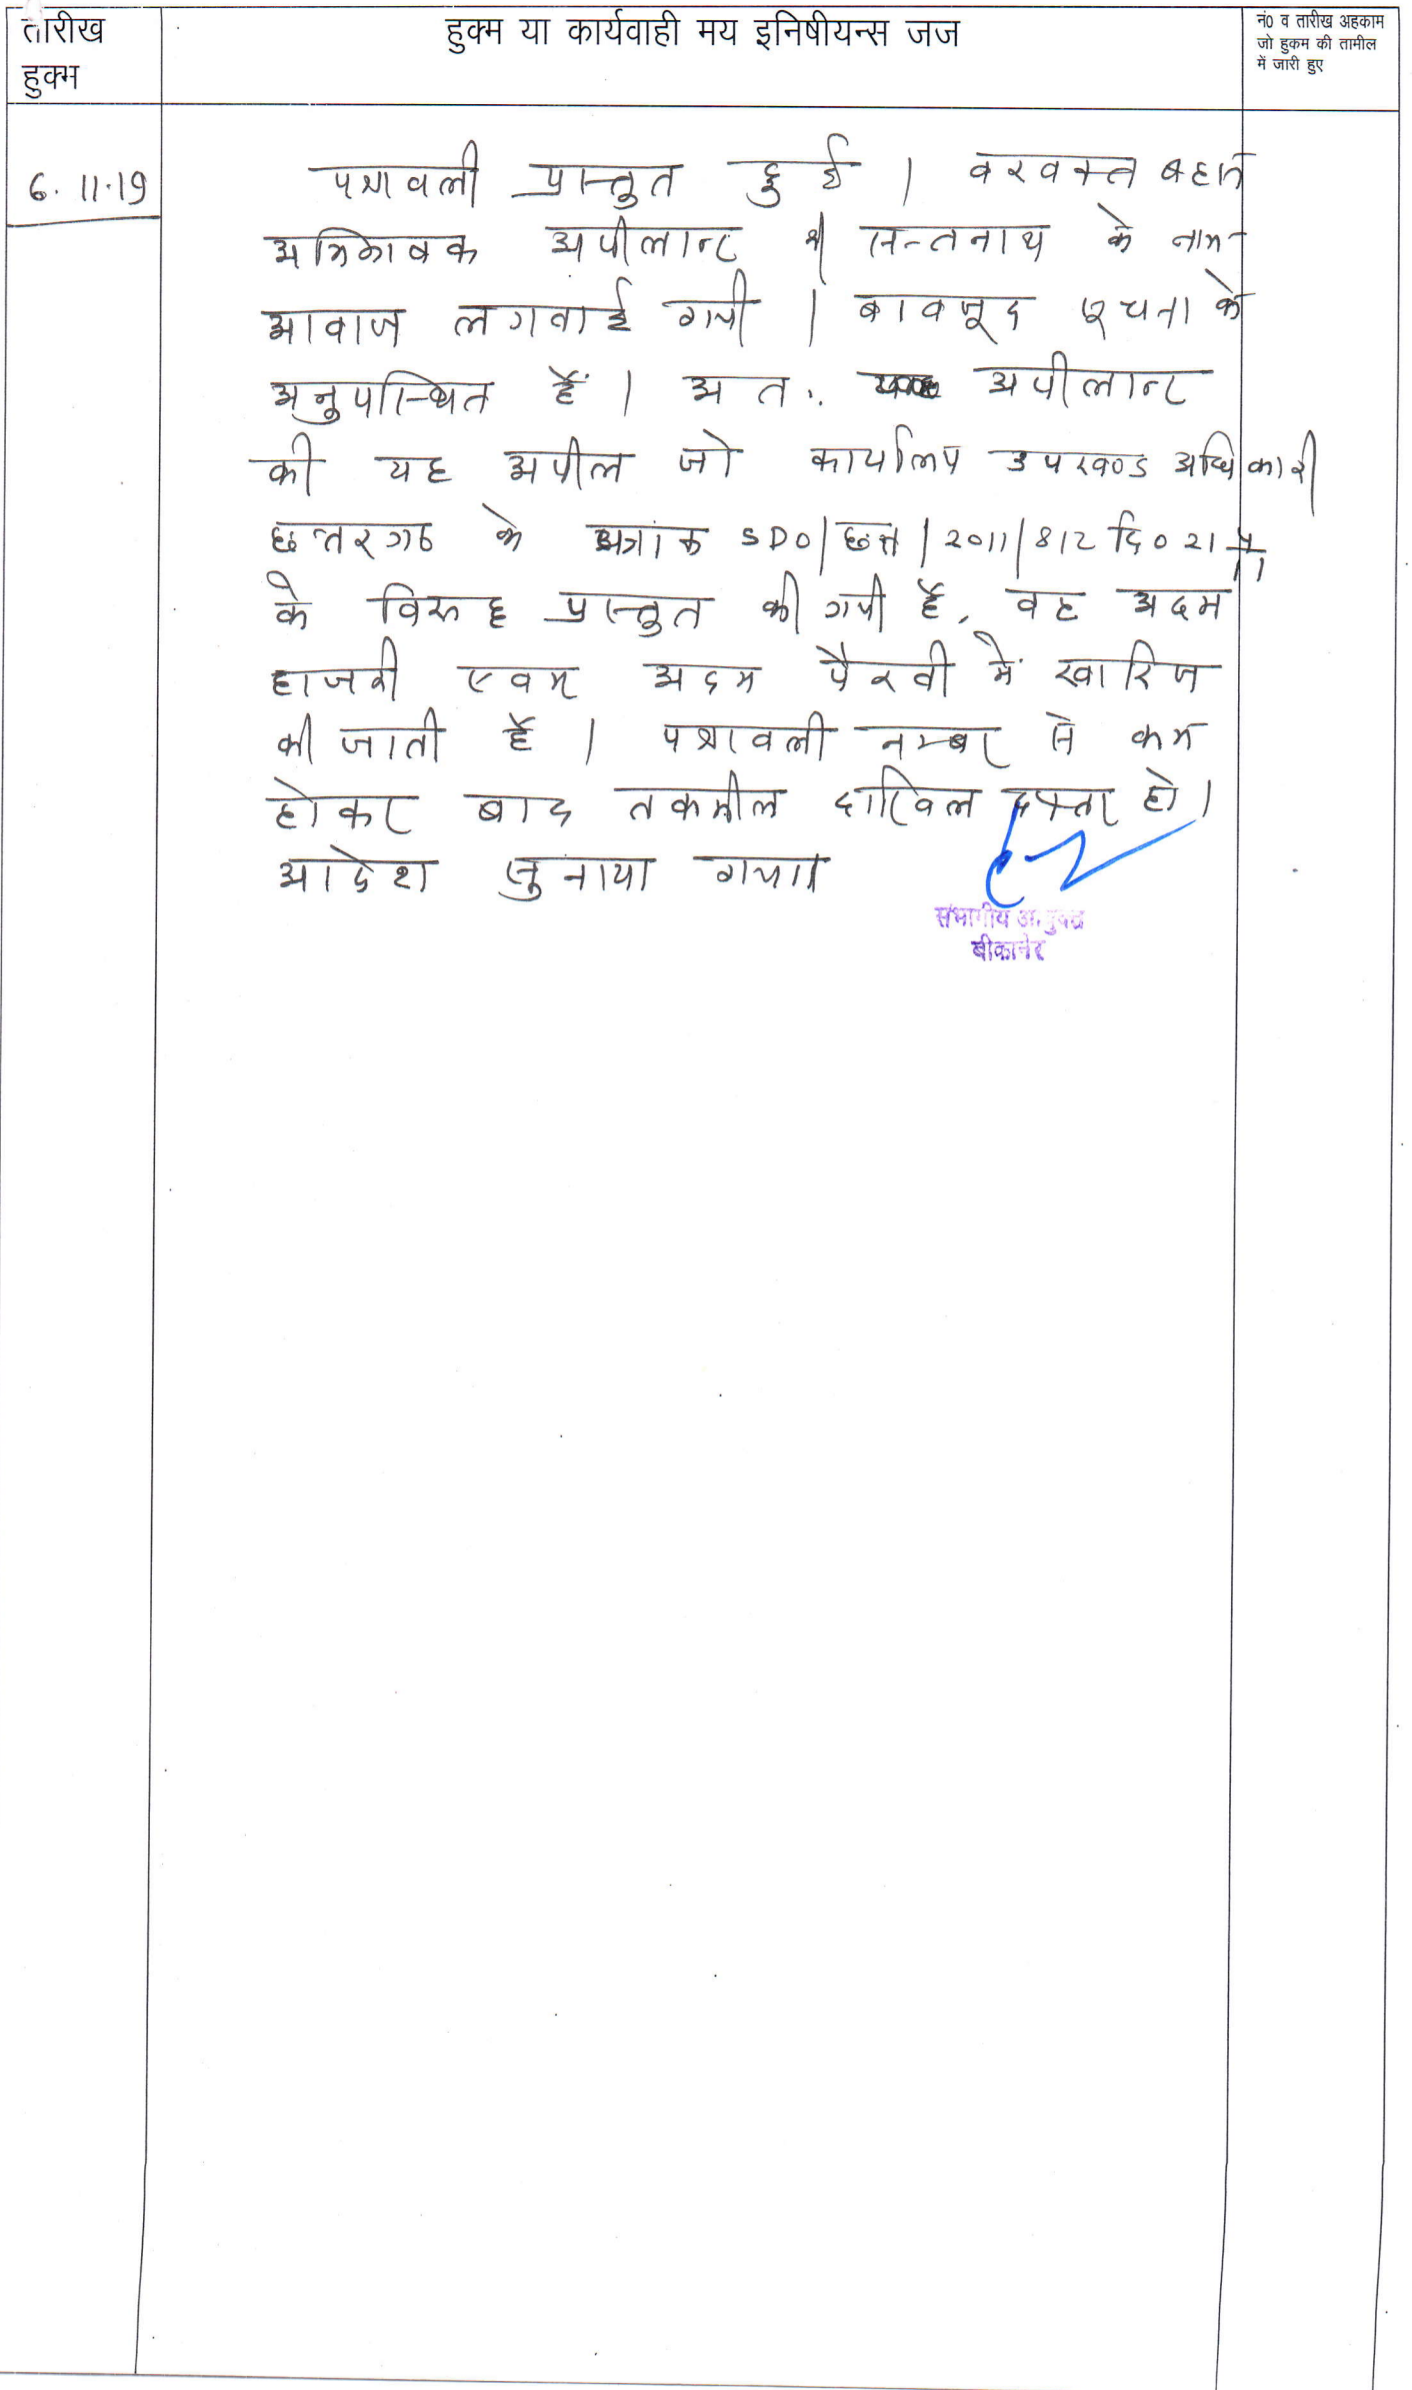 तारीख
हुक्म
हुक्म या कार्यवाही मय इनिषीयन्स जज
नं0 व तारीख अहकाम
जो हुकम की तामील
में जारी हुए
6.11.19
पत्रावली प्रस्तुत हुई । वरवक्त बहस
अभिभाषक अपीलान्ट श्री सन्तनाथ के नाम
आवाज लगवाई गयी । बावजूद सूचना के
अनुपस्थित हैं । अतः अपीलान्ट
की यह अपील जो कार्यालय उपखण्ड अधिकारी
छत्तरगढ के पत्रांक SDO/छत्त/2011/812 दि0 21
के विरुद्ध प्रस्तुत की गयी है, वह अदम
हाजरी एवम् अदम पैरवी में खारिज
की जाती है । पत्रावली नम्बर से कम
होकर बाद तकमील दाखिल दफ्तर हो ।
आदेश सुनाया गया।
संभागीय आयुक्त
बीकानेर